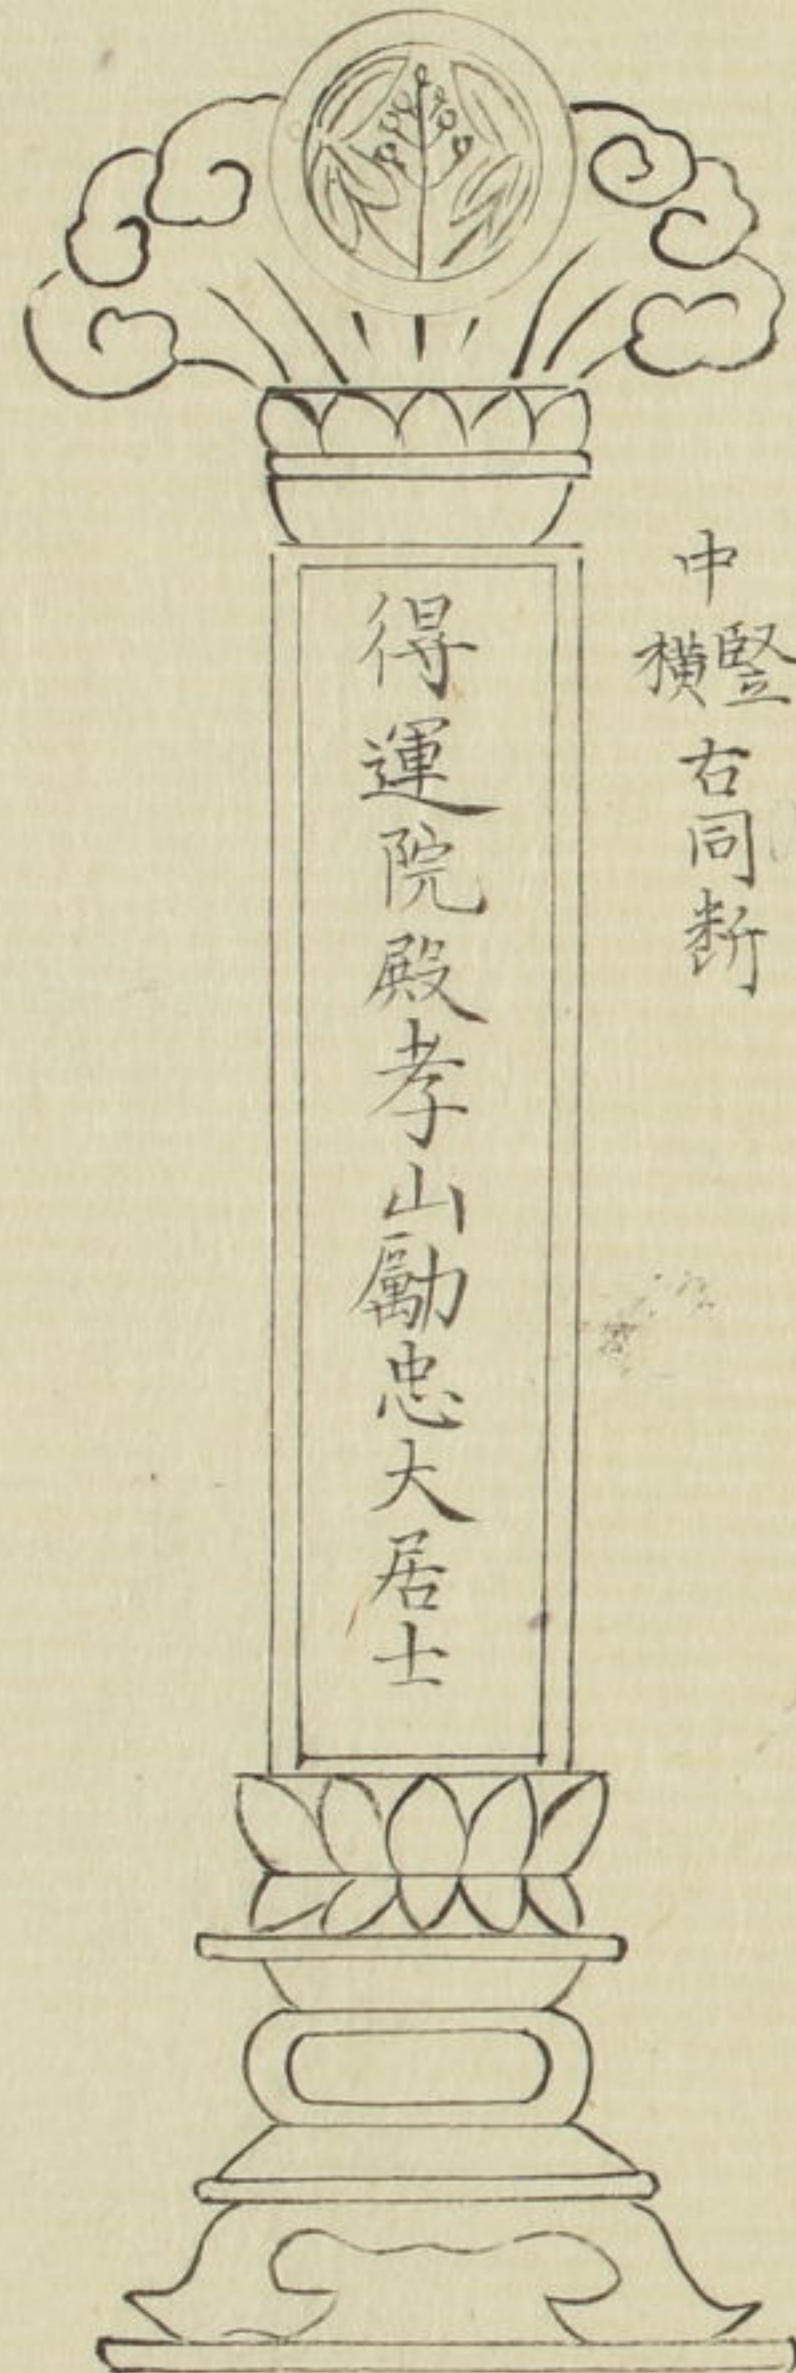 中竪横右同断
得運院殿孝山勵忠大居士